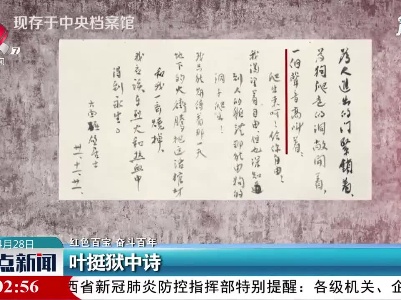 现存于中央档案馆
为人进出的门紧锁着
为狗爬走的洞敞开着
一个声音高叫着
爬出来呵！给你自由！
我渴望着自由但也深知
人的躯体那能由狗的
洞子爬出！
我只能期待着那一天
地下的火冲腾把这活棺材
和我一齐烧掉
我应该在烈火和热血中
得到永生。
六面碰壁居士
月28日
红色百宝 奋斗百年
点新闻
叶挺狱中诗
02:56
西省新冠肺炎防控指挥部特别提醒：各级机关、企